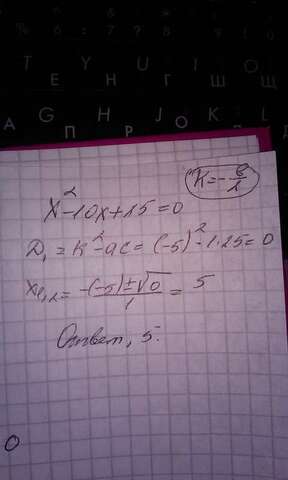 T Y U I O
Е Н Г Ш Щ
G H J K L
А П Р О Л
K = -в/2
x² - 10x + 25 = 0
D₁ = к² - ac = (-5)² - 1·25 = 0
x₁,₂ = -(-5) ± √0 / 1 = 5
Ответ, 5.